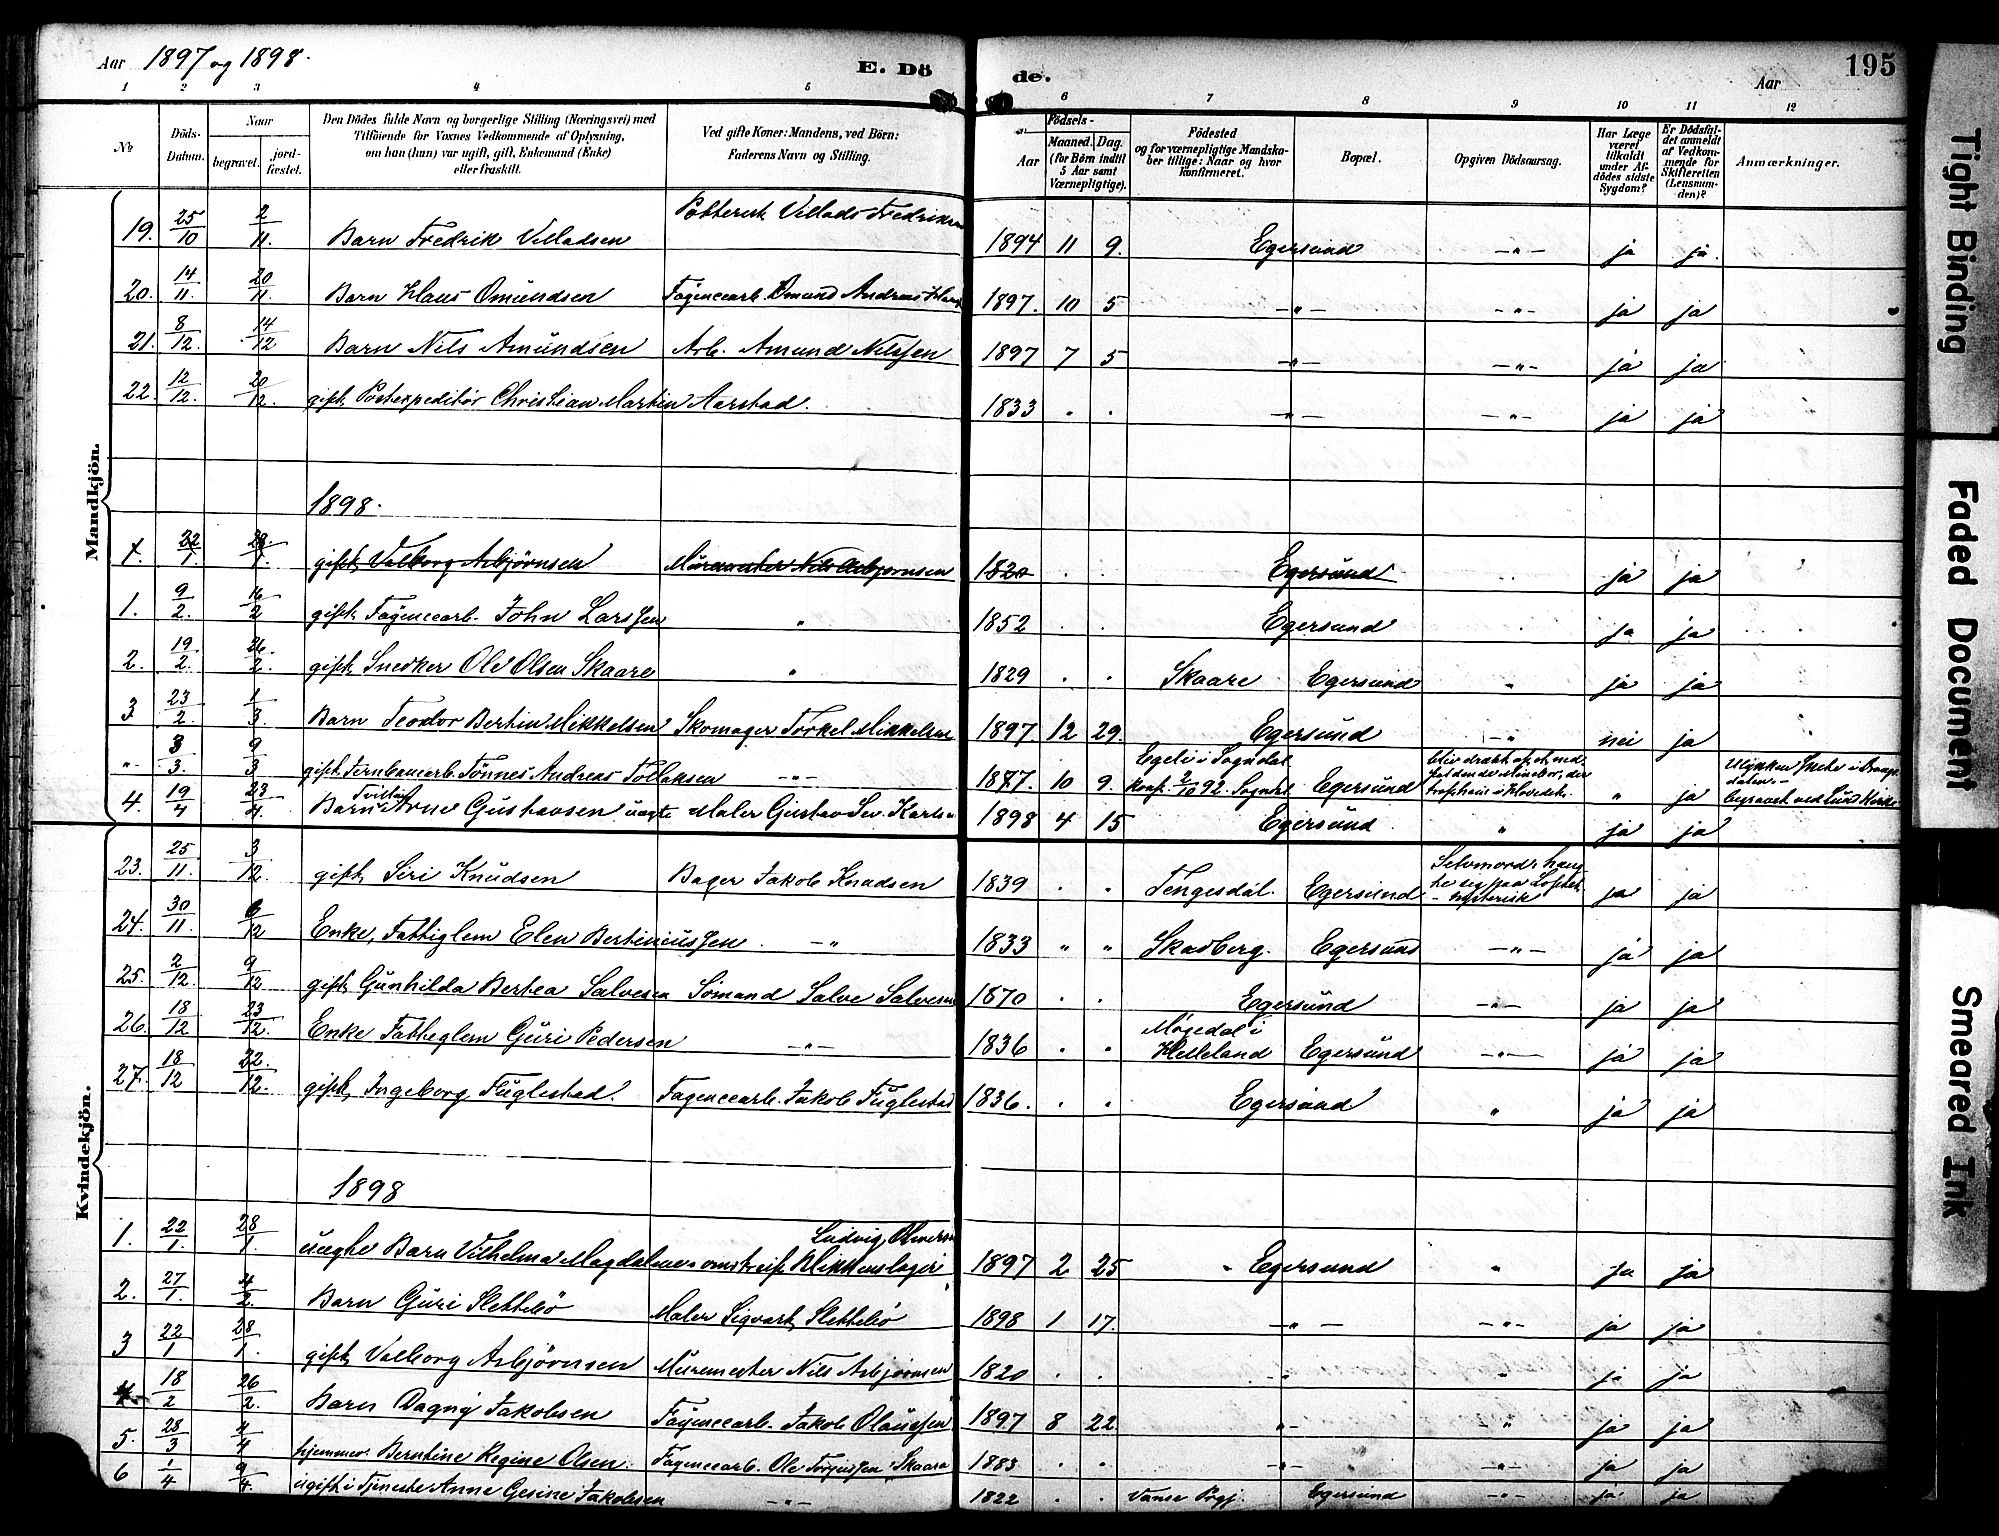 Aar 1897 og 1898. E. Dö de. Aar 195
1 2 3 4 5 6 7 8 9 10 11 12
No
Döds-Datum.
Naar
begravet.
jord-fæstet.
Den Dödes fulde Navn og borgerlige Stilling (Næringsvei) med
Tilföiende for Voxnes Vedkommende af Oplysning,
om han (hun) var ugift, gift, Enkemand (Enke)
eller fraskilt.
Ved gifte Koner: Mandens, ved Börn:
Faderens Navn og Stilling.
Födsels-
Aar
Maaned. Dag.
(for Börn indtil
5 Aar samt
Værnepligtige).
Födested
og for værnepligtige Mandska-
ber tillige: Naar og hvor
konfirmeret.
Bopæl.
Opgiven Dödsaarsag.
Har Læge
været
tilkaldt
under Af-
dödes sidste
Sygdom?
Er Dödsfal-
det anmeldt
af Vedkom-
mende for
Skifteretten
(Lensmanden)?
Anmærkninger.
Mandkjön.
19. 25/10 2/11. Barn Fredrik Villadsen Villads Fredriksen 1894 11 9. Egersund -"- ja ja.
20. 14/11. 20/11. Barn Klaus Omundsen Fayencearb. Omund Andreas 1897. 10 5 -"- -"- ja ja
21. 8/12. 14/12 Barn Nils Amundsen Arb. Amund Nilssen 1897 7 5 -"- -"- ja ja
22. 12/12. 20/12. gift, Postexpeditör Christian Martin Aarstad. 1833 . . -"- -"- ja ja
1898.
1. 22/1 28/1 gift, Valborg Asbjörnsen Muremester Nils Asbjørnsen 1820 . . Egersund ja ja
1. 9/2. 16/2 gift, Fayencearb. John Larssen " 1852 . . Egersund ja ja
2. 19/2. 26/2. gift, Snedker Ole Olsen Skaare " 1829 . . Skaare Egersund " ja ja
3 23/2. 1/3. Barn Teodor Bertin Mikkelsen Skomager Torkel Mikkelsen 1897 12 29. Egersund -" nei ja
" 3/3. 9/3 gift Jernbanearb. Tönnes Andreas Tollaksen -"- 1877. 10 9. Egeli i Sogndal konf. 2/10 92. Sogndal Egersund blev dræbt af et ned- " ja begravet ved Lund Kirke
4. 19/4 23/4. Barn Tvilling Arne Gustavsen uægte Maler Gustav Sev. Karlsen 1898 4 15 Egersund " ja ja
Kvindekjön.
23. 25/11. 3/12. gift, Siri Knudsen Bager Jakob Knudsen 1839 . " Tengesdal. Egersund Selvmord: hæng-
te sig paa Loftet
- hysterisk ja ja
24. 30/11 6/12 Enke, Fattiglem Elen Bertiniussen -"- 1833 " " Skadberg. Egersund -"- ja ja
25. 2/12 9/12 gift, Gunhilda Bertea Salvesen Sömand Salve Salvesen 1870 . . Egersund -"- ja ja
26. 18/12 23/12. Enke Fattiglem Guri Pedersen -"- 1836 . " Møgedal i
Helleland Egersund -"- ja ja
27. 18/12 22/12. gift, Ingeborg Fuglestad. Fayencearb. Jakob Fuglestad 1836. . " Egersund " ja ja
1898
1. 22/1. 28/1. uægte Barn Vilhelma Magdalene omstreif. Blikkenslager Ludvig 1897 2 25 Egersund " ja ja
2. 27/1. 4/2. Barn Guri Slettebö Maler Sigvart Slettebö 1898 1 17. -"- -"- ja ja
3 22/1 28/1. gift, Valborg Asbjörnsen Muremester Nils Asbjørnsen 1820 . . " " ja ja
4. 18/2 26/2. Barn Dagny Jakobsen Fayencearb. Jakob Olaussen 1897 8 22. "- " ja ja
5. 28/3 2/4 hjemmev. Berntine Regine Olsen. Fayencearb. Ole Torgussen Skaara 1883 . . " -"- ja ja
6 1/4 9/4. ugift i Tjeneste Anne Gesine Jakobsen -"- 1822 . . Vanse Prgj. Egersund -"- ja ja
Tight Binding
Faded Document
Smeared Ink